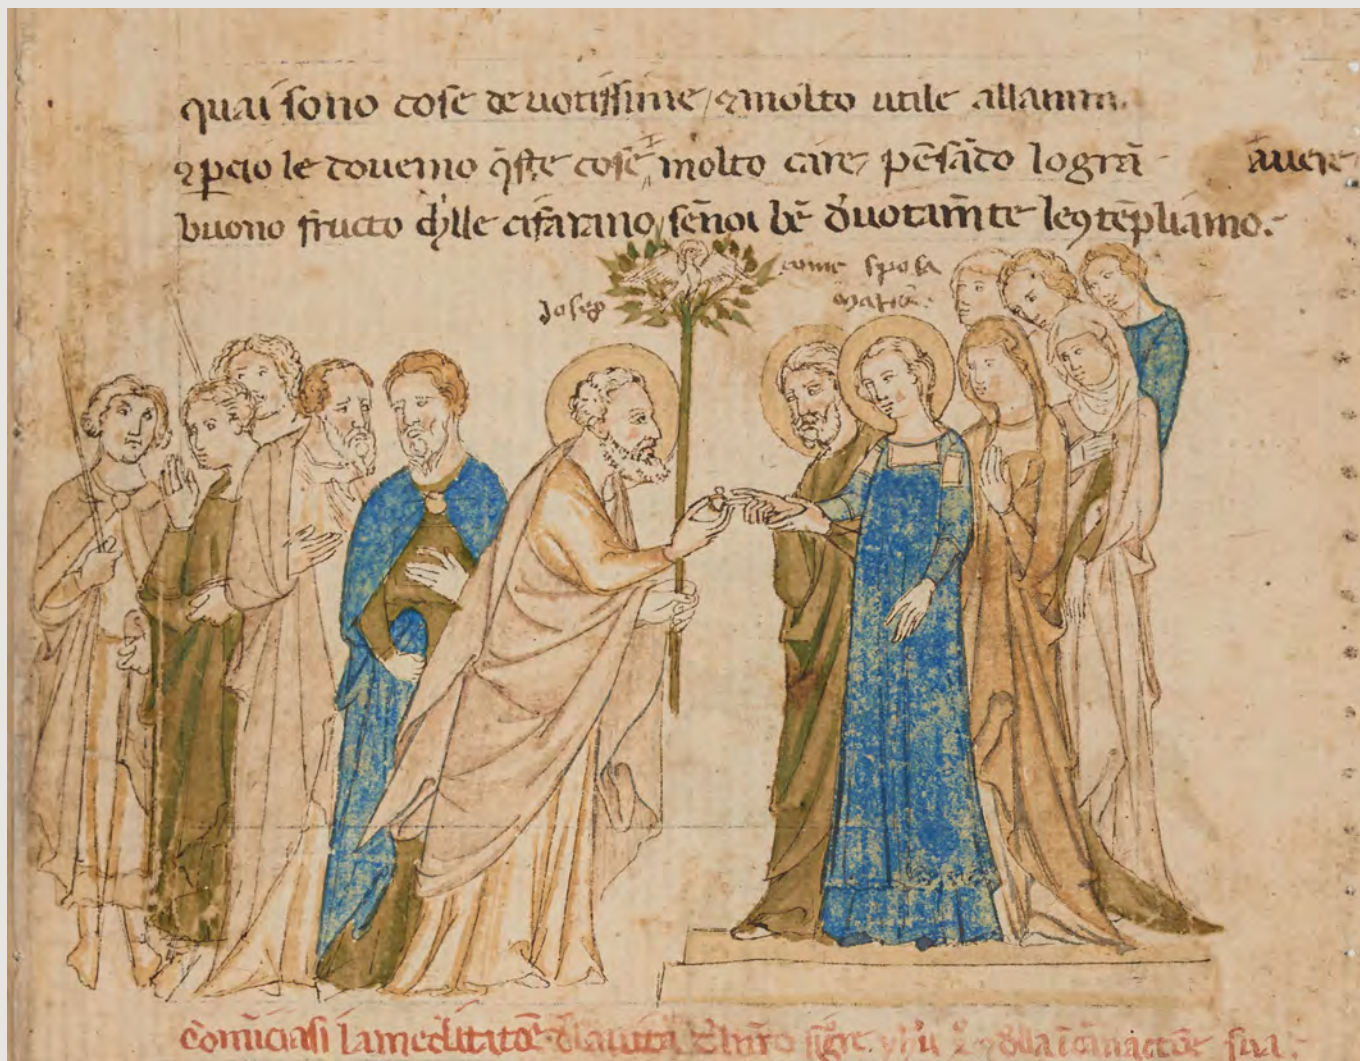 quai sono cose deuotissime / ⁊ molto utile allanima.
⁊ ꝑcio le douemo q̄ste cose molto care / pēsādo logrā auere
buono fructo dylle cifarāno / senoi bē d'uotam̄te le ꝯtēpliamo.
Josep
come sposa
maria.
Comīciasi la meditatōe d'la uita d'lnr̄o sig̅re yh'u